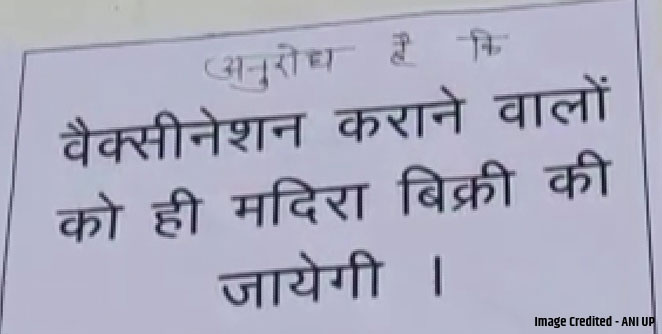 अनुरोध है कि
वैक्सीनेशन कराने वालों
को ही मदिरा बिक्री की
जायेगी ।
Image Credited - ANI UP